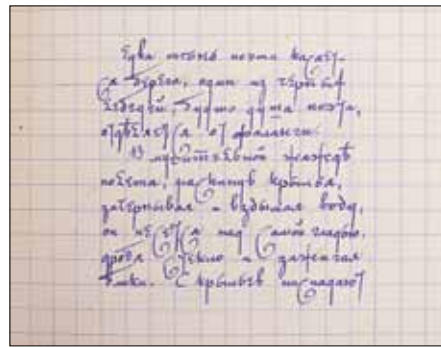 Едва только нога касает-
ся берега, один из чёрных
лебедей, будто душа поэта,
отдѣляется от фаланги.
В мучительной жаждѣ
полёта, раскинув крылья,
зачерпывая и вздымая воду,
он несётся над самой гладью,
дробя стекло и зажигая
блики. С крыльев ниспадают